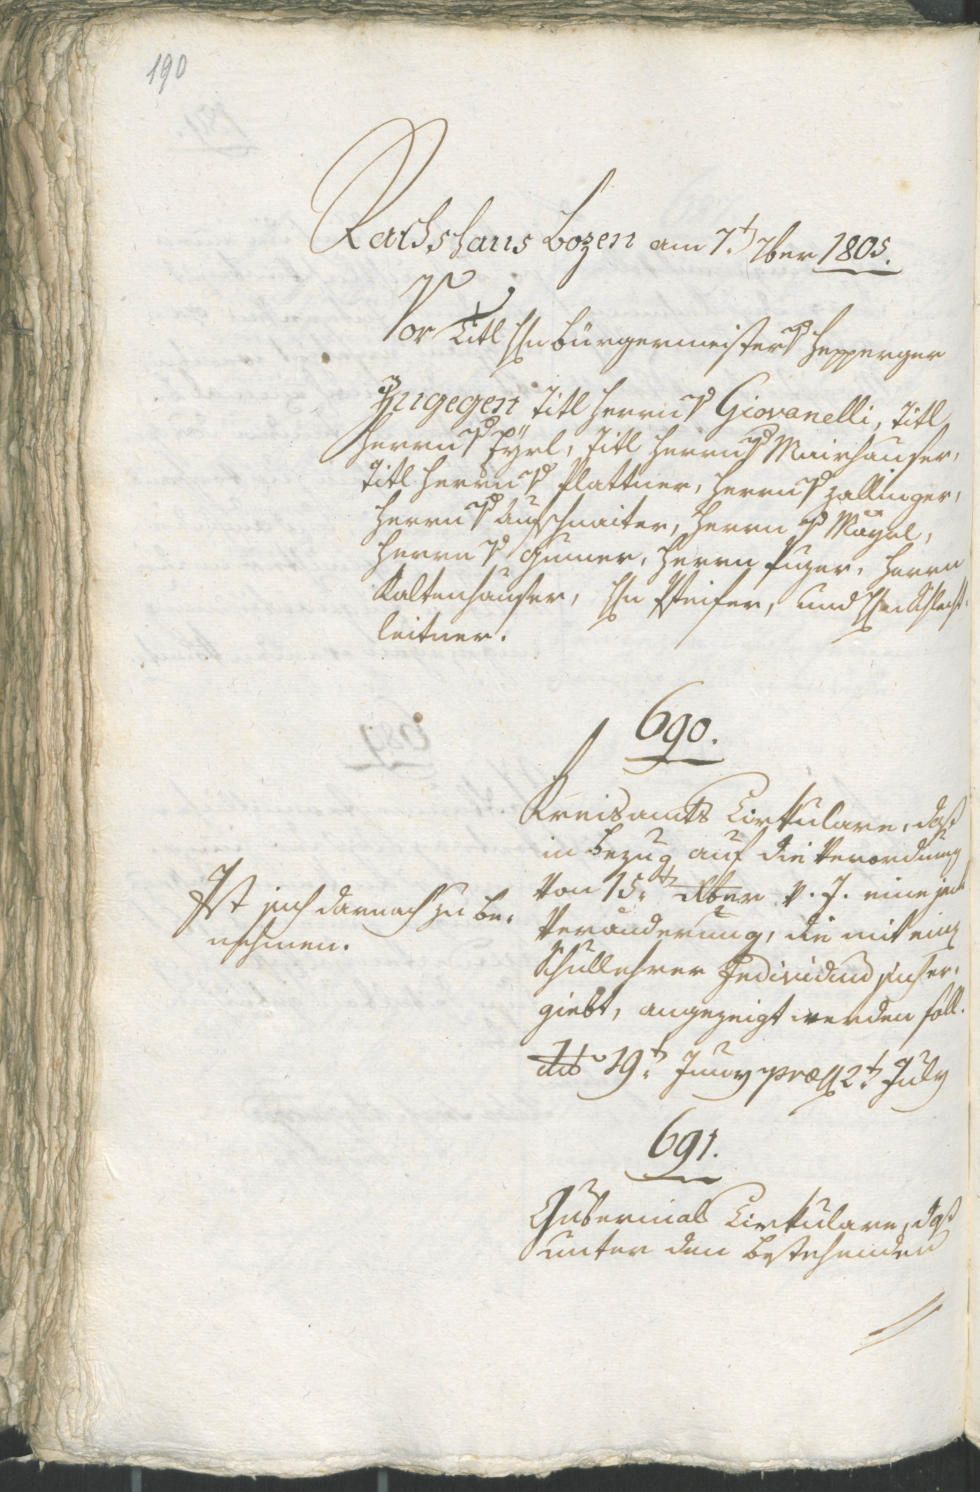 190
Rathshaus Bozen am 7.t 7ber 1805.
Vor Titl Hn Bürgermeister v Hepperger
Zugegen Titl Herrn v Giovanelli, Titl
Herrn v Pÿrl, Titl Herrn v Mairhauser,
Titl Herrn v Plattner, Herrn v Zallinger,
Herrn v Aufschnaiter, Herrn v Mayrl,
Herrn v Gumer, Herrn Puzer, Herrn
Kaltenhauser, Hn Pfeifer, und Hn Schlecht-
leitner.
690.
Kreisamts Cirkulare, daß
in Bezug auf die Verordnung
von 15.t v. J. eine jede
Veränderung, die mit einem
Schullehrer Individuum sich er-
giebt, angezeigt werden soll.
dto 19.t Juny præs 2.t July
Ist sich darnach zu be-
nehmen.
691.
Gubernial Cirkulare, daß
unter den bestehenden